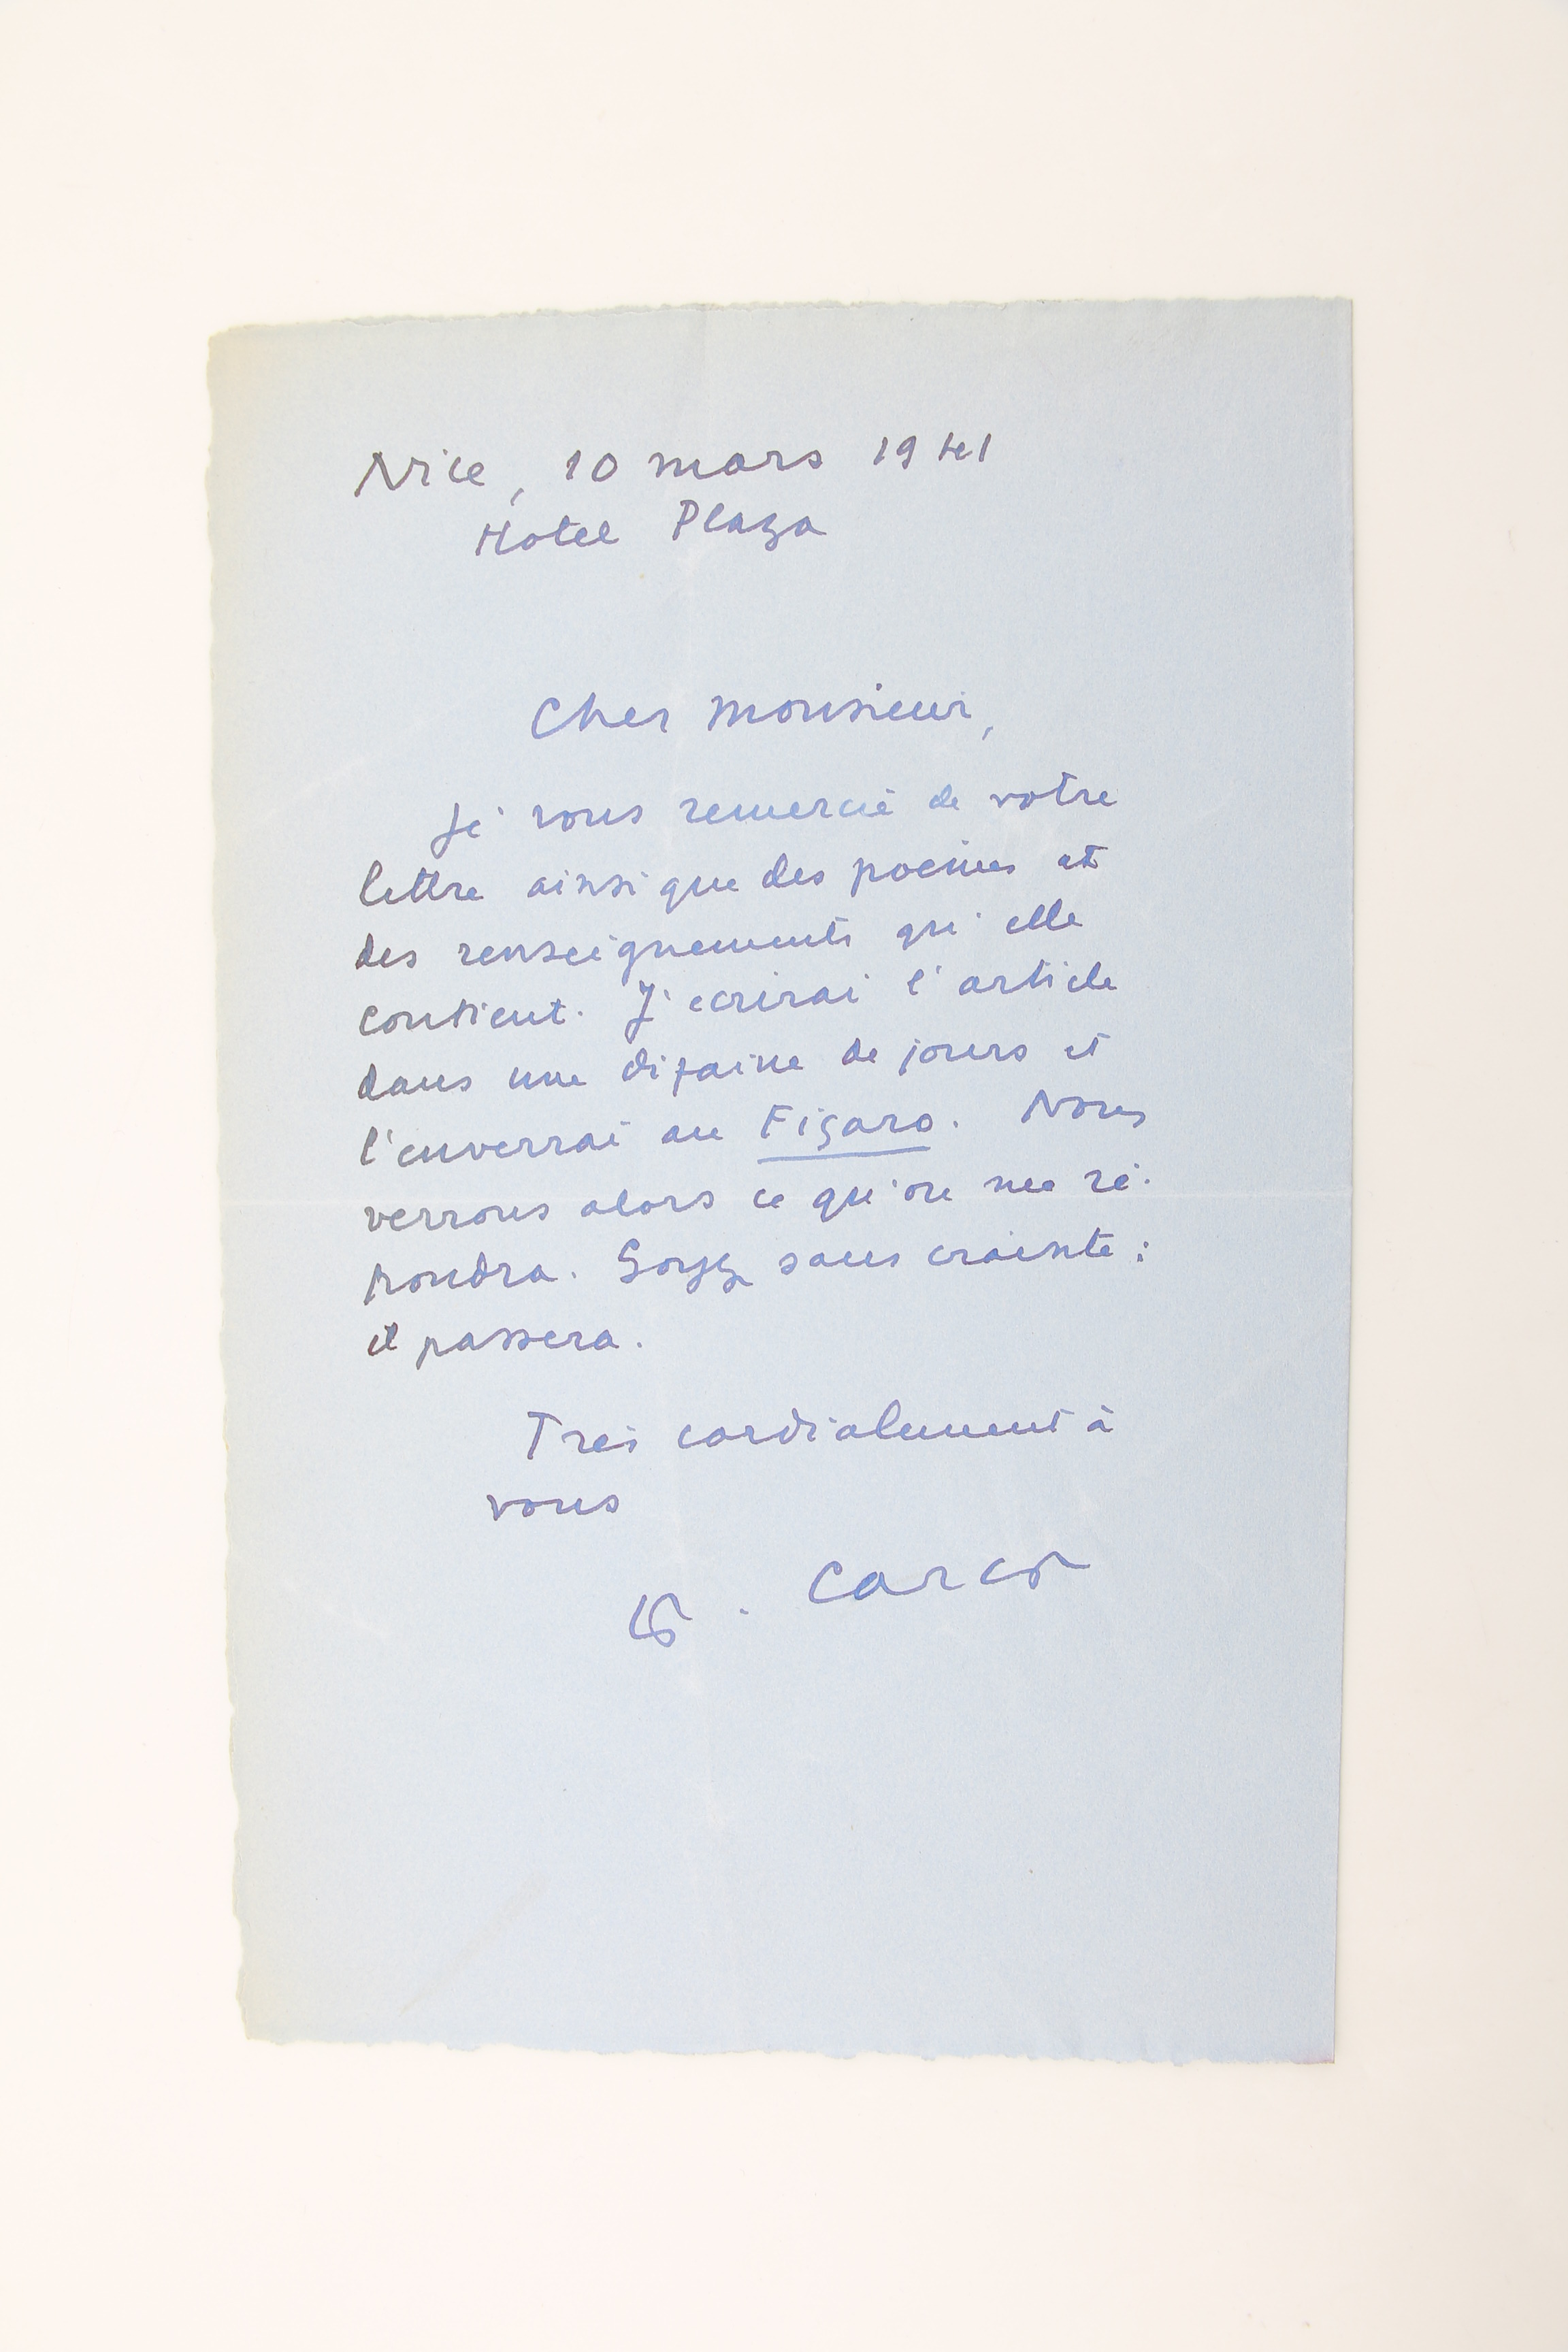 Nice, 10 mars 1941
Hotel Plaza
Cher monsieur,
Je vous remercie de votre
lettre ainsi que des poèmes et
des renseignements qu'elle
contient. J'écrirai l'article
dans une dizaine de jours et
l'enverrai au Figaro. Nous
verrons alors ce qu'on me ré-
pondra. Soyez sans crainte :
il passera.
Très cordialement à
vous
F. Carco